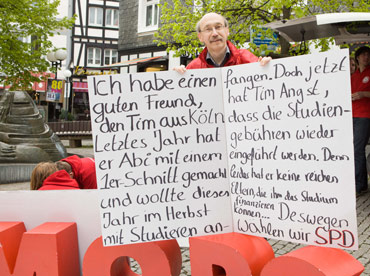 Ich habe einen
guten Freund,
den Tim aus Köln
Letztes Jahr hat
er Abi mit einem
1er-Schnitt gemacht
und wollte dieses
Jahr im Herbst
mit Studieren an-
fangen. Doch jetzt
hat Tim Angst,
dass die Studien-
gebühren wieder
eingeführt werden. Denn
er hat keine reichen
Eltern, die ihm das Studium
finanzieren
können... Deswegen
wählen wir SPD